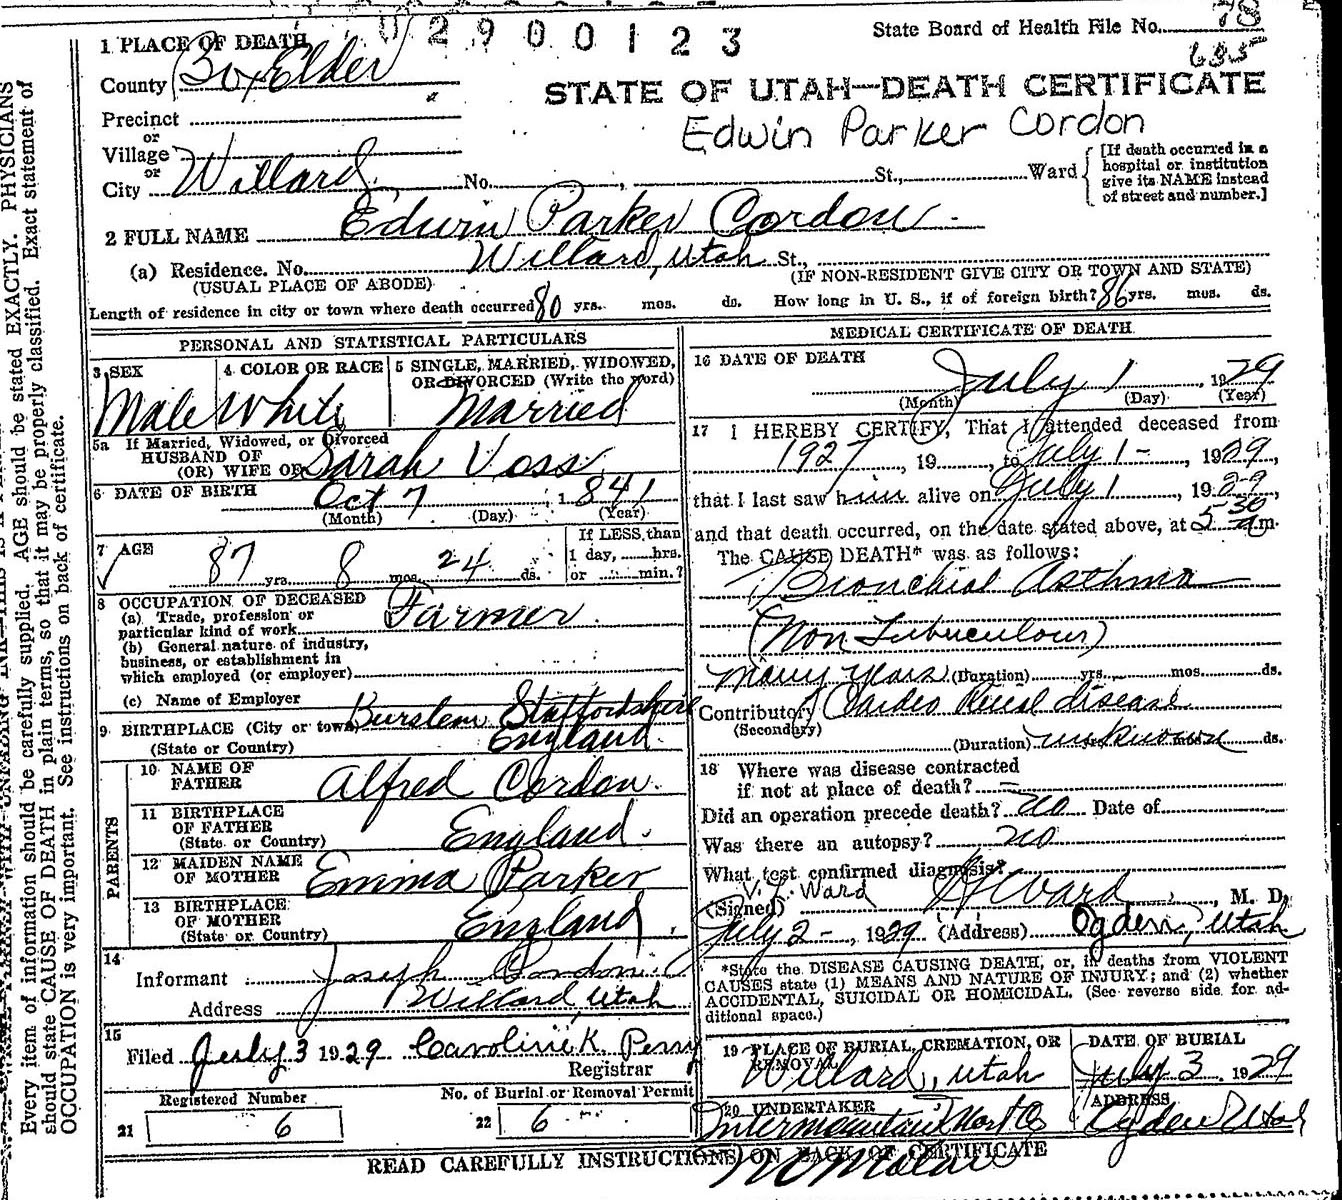 02900123
State Board of Health File No. 78
635
1 PLACE OF DEATH
County Box Elder
STATE OF UTAH—DEATH CERTIFICATE
Edwin Parker Cordon
Precinct
or
Village
or
City Willard No. , St., Ward
[If death occurred in a
hospital or institution
give its NAME instead
of street and number.]
2 FULL NAME Edwin Parker Cordon
(a) Residence. No. Willard, Utah St.,
(USUAL PLACE OF ABODE) (IF NON-RESIDENT GIVE CITY OR TOWN AND STATE)
Length of residence in city or town where death occurred 80 yrs. mos. ds. How long in U. S., if of foreign birth? 86 yrs. mos. ds.
PERSONAL AND STATISTICAL PARTICULARS
3 SEX 4 COLOR OR RACE 5 SINGLE, MARRIED, WIDOWED,
OR DIVORCED (Write the word)
Male White Married
5a If Married, Widowed, or Divorced
HUSBAND OF
(OR) WIFE OF Sarah Voss
6 DATE OF BIRTH Oct 7 1841
(Month) (Day) (Year)
7 AGE 87 yrs. 8 mos. 24 ds.
If LESS than
1 day, hrs.
or min.?
8 OCCUPATION OF DECEASED
(a) Trade, profession or
particular kind of work Farmer
(b) General nature of industry,
business, or establishment in
which employed (or employer)
(c) Name of Employer
9 BIRTHPLACE (City or town) Burslem Staffordshire
(State or Country) England
PARENTS
10 NAME OF
FATHER Alfred Cordon
11 BIRTHPLACE
OF FATHER
(State or Country) England
12 MAIDEN NAME
OF MOTHER Emma Parker
13 BIRTHPLACE
OF MOTHER
(State or Country) England
14
Informant Joseph Cordon
Address Willard, Utah
15
Filed July 3 1929 Caroline K. Perry
Registrar
Registered Number No. of Burial or Removal Permit
21 6 22 6
MEDICAL CERTIFICATE OF DEATH
16 DATE OF DEATH July 1, 1929
(Month) (Day) (Year)
17 I HEREBY CERTIFY, That I attended deceased from
1927, 19 , to July 1 - , 1929,
that I last saw him alive on July 1, 1929,
and that death occurred, on the date stated above, at 5 30 am.
The CAUSE DEATH* was as follows:
Bronchial Asthma
(Non Tubuculour)
many years (Duration) yrs. mos. ds.
Contributory Cardeo Renal disease
(Secondary)
(Duration) unknown ds.
18 Where was disease contracted
if not at place of death?
Did an operation precede death? no Date of
Was there an autopsy? no
What test confirmed diagnosis?
V. L. Ward
(Signed) Ward, M. D.
July 2 - , 1929 (Address) Ogden, Utah
*State the DISEASE CAUSING DEATH, or, in deaths from VIOLENT
CAUSES state (1) MEANS AND NATURE OF INJURY; and (2) whether
ACCIDENTAL, SUICIDAL OR HOMICIDAL. (See reverse side for ad-
ditional space.)
19 PLACE OF BURIAL, CREMATION, OR
REMOVAL
Willard, Utah
DATE OF BURIAL
July 3 1929
20 UNDERTAKER
Intermountain Mort Co
ADDRESS
Ogden Utah
READ CAREFULLY INSTRUCTIONS ON BACK OF CERTIFICATE
Every item of information should be carefully supplied. AGE should be stated EXACTLY. PHYSICIANS
should state CAUSE OF DEATH in plain terms, so that it may be properly classified. Exact statement of
OCCUPATION is very important. See instructions on back of certificate.